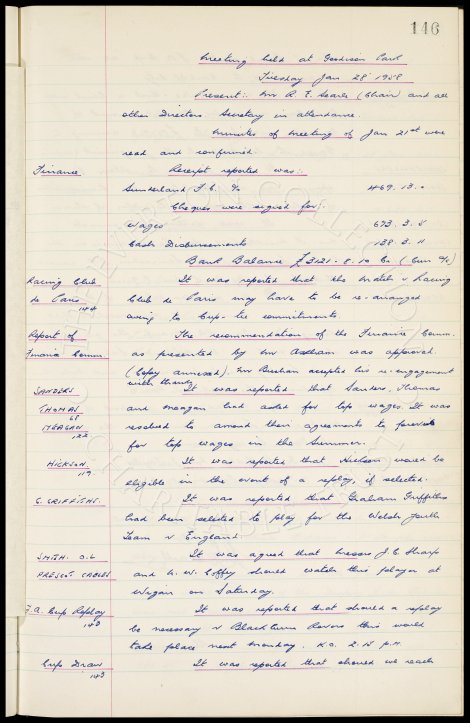 146
Meeting held at Goodison Park
Tuesday Jan 28 1958
Present: Mr R. E. Searle (Chair) and all
other Directors. Secretary in attendance.
Minutes of Meeting of Jan 21st were
read and confirmed.
Finance. Receipt reported was:.
Sunderland F.C. a/c 469. 13. 0
Cheques were signed for:.
Wages 673. 3. 5
Cash Disbursements 138. 3. 11
Bank Balance £3121 - 8. 10 Cr. (Curr a/c)
Racing Club It was reported that the match v Racing
de Paris Club de Paris may have to be re-arranged
144 owing to Cup-tie commitments.
Report of The recommendation of the Finance Comm.
Finance Comm. as presented by Mr was approved.
(Copy annexed). Mr accepted his re-engagement
with thanks.
SANDERS It was reported that Sanders, Thomas
THOMAS and Meagan had asked for top wages. It was
65
MEAGAN resolved to amend their agreements to provide
122
for top wages in the Summer.
HICKSON. It was reported that Hickson would be
119 eligible in the event of a replay, if selected.
G. GRIFFITHS. It was reported that Graham Griffiths
had been selected to play for the Welsh Youth
Team v England.
SMITH. O.L It was agreed that Messrs J. C. Sharp
PRESCOT CABLES and watch this player at
Wigan on Saturday.
F.A. Cup Replay It was reported that should a replay
143 be necessary v Blackburn Rovers this would
take place next Monday. K.O. 2.15 p.m.
Cup Draw It was reported that should we reach
143